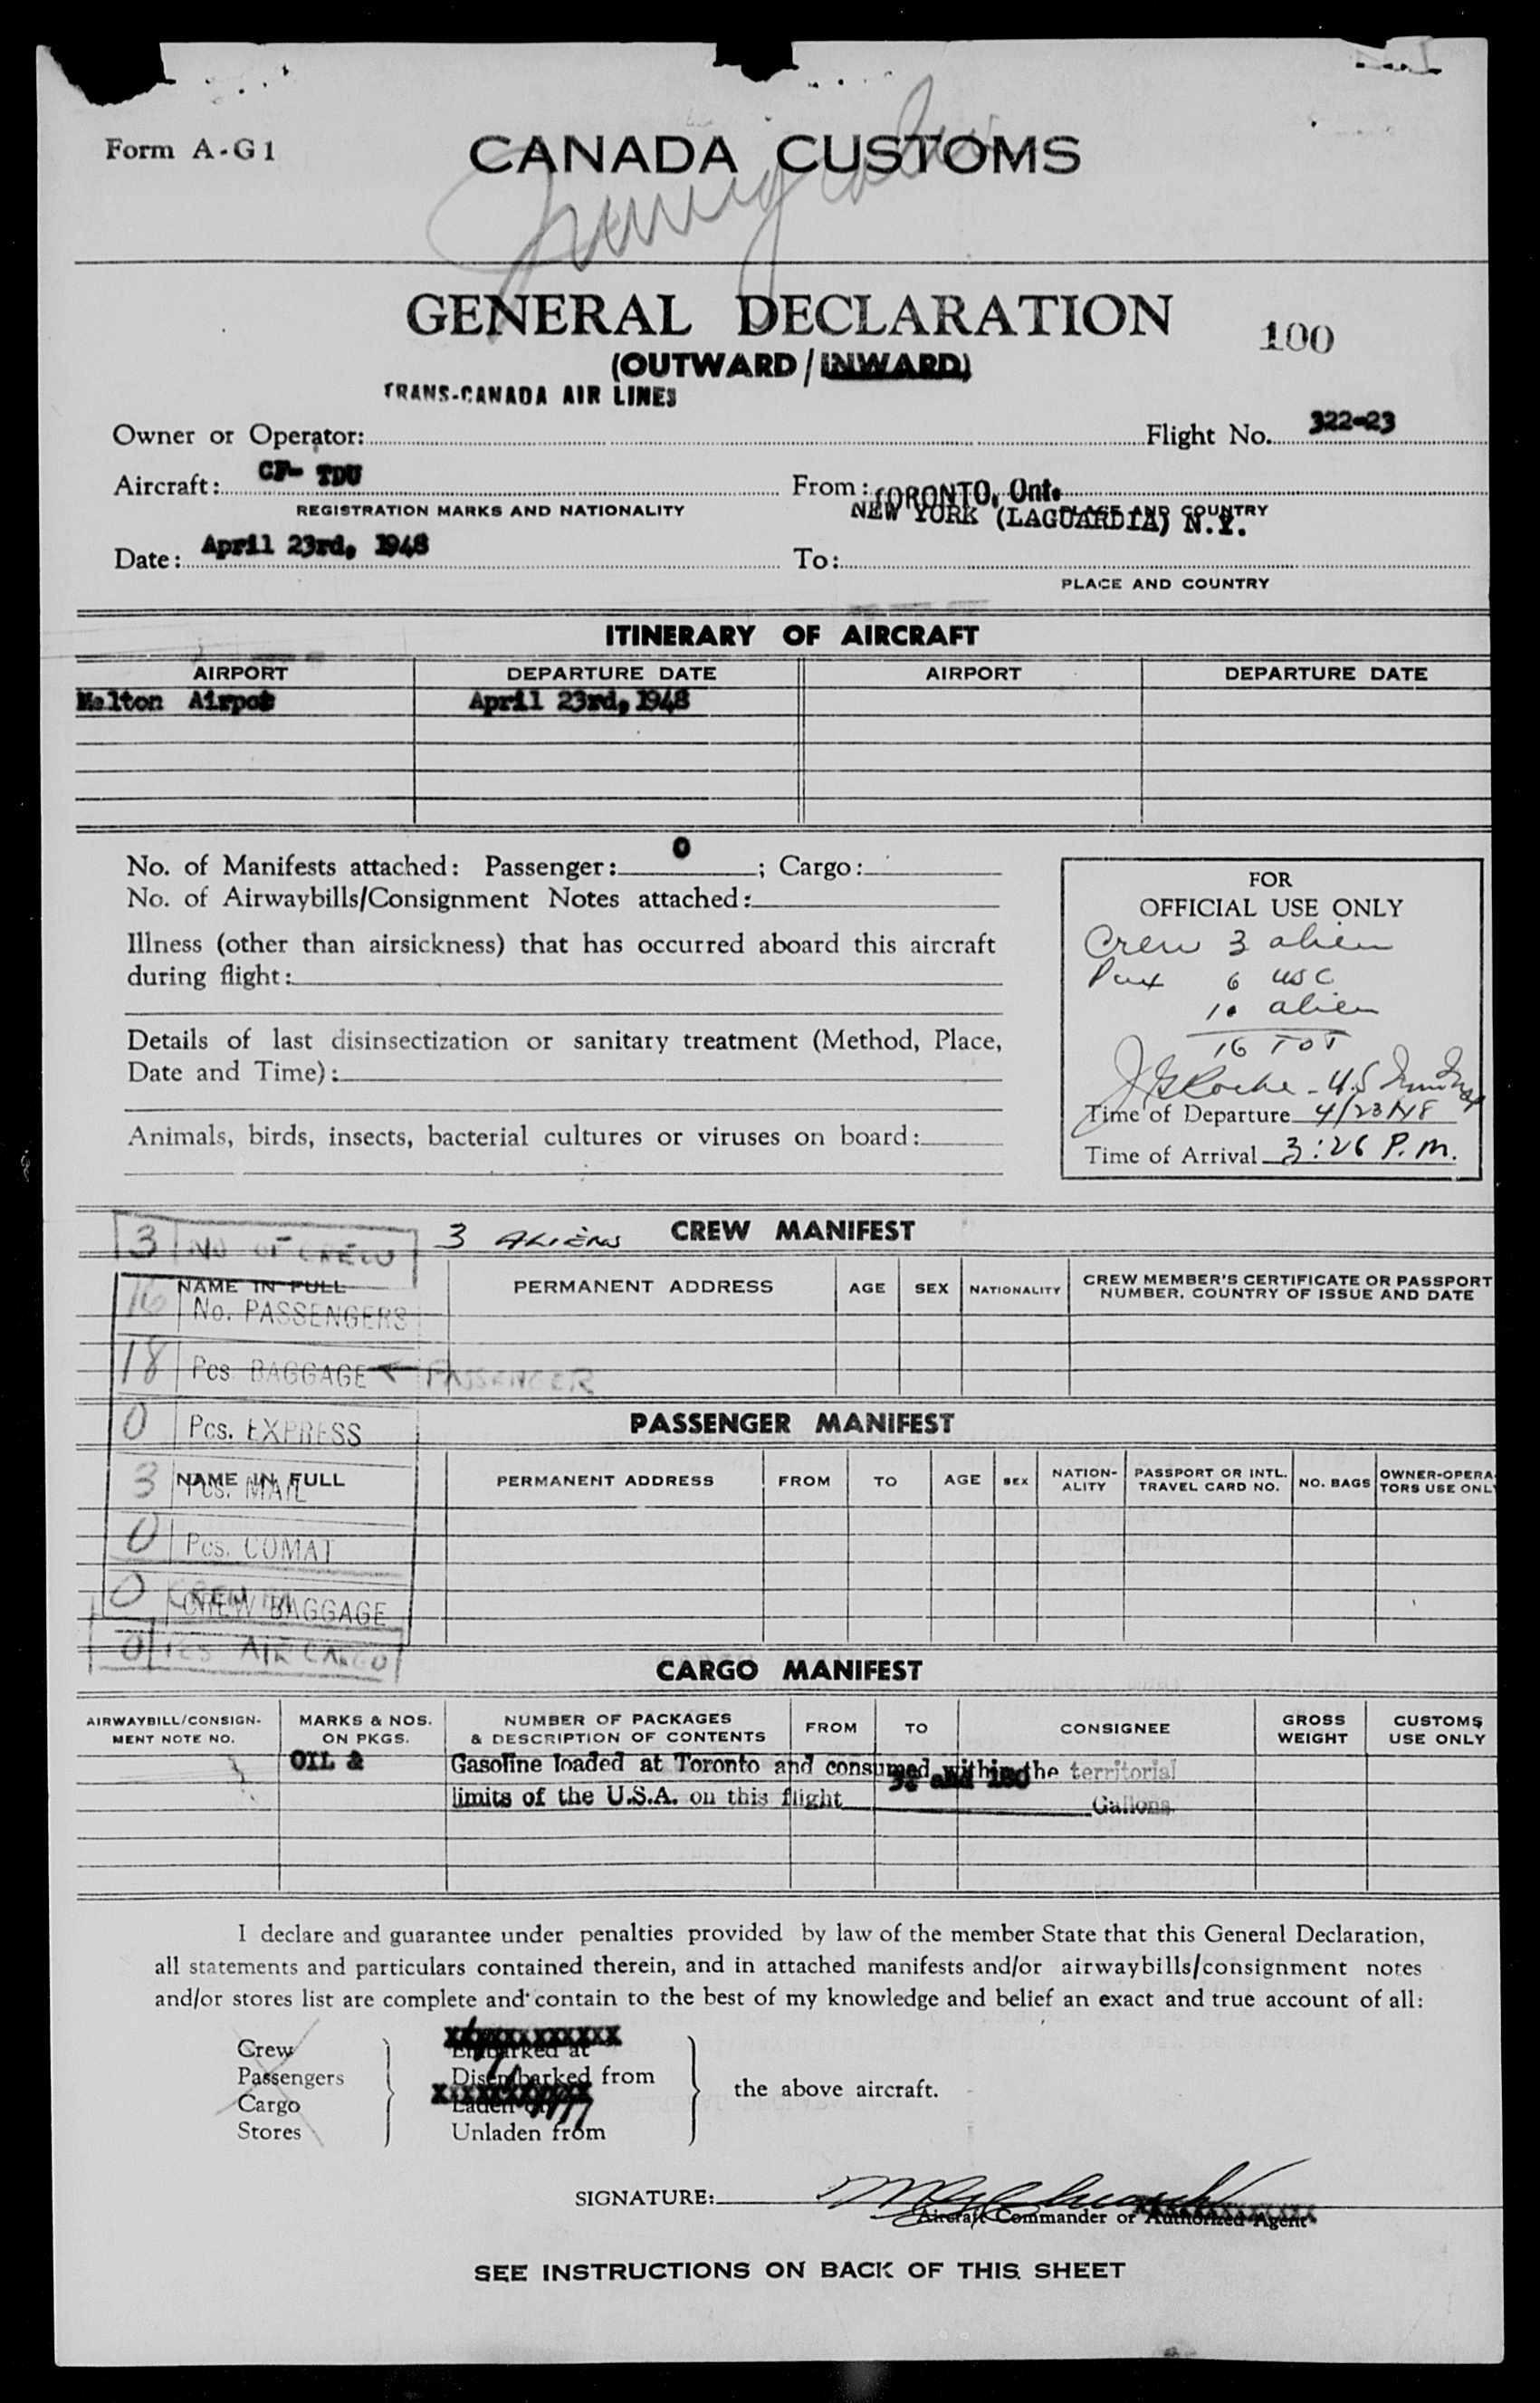 Form A-G1
CANADA CUSTOMS
Immigration
GENERAL DECLARATION
100
(OUTWARD/INWARD)
TRANS-CANADA AIR LINES
Owner or Operator: Flight No. 322-23
Aircraft: CF- TDU From: TORONTO, Ont.
REGISTRATION MARKS AND NATIONALITY PLACE AND COUNTRY
NEW YORK (LAGUARDIA) N.Y.
Date: April 23rd, 1948 To:
PLACE AND COUNTRY
ITINERARY OF AIRCRAFT
AIRPORT DEPARTURE DATE AIRPORT DEPARTURE DATE
Malton Airpot April 23rd, 1948
No. of Manifests attached: Passenger: 0 ; Cargo:
No. of Airwaybills/Consignment Notes attached:
Illness (other than airsickness) that has occurred aboard this aircraft
during flight:
Details of last disinsectization or sanitary treatment (Method, Place,
Date and Time):
Animals, birds, insects, bacterial cultures or viruses on board:
FOR
OFFICIAL USE ONLY
Crew 3 alien
Pax 6 USC
10 alien
16 TOT
Roche - U.S.
Time of Departure 4/23/48
Time of Arrival 3:26 P.M.
3 No OF CREW
3 ALIENS
CREW MANIFEST
NAME IN FULL PERMANENT ADDRESS AGE SEX NATIONALITY CREW MEMBER'S CERTIFICATE OR PASSPORT
NUMBER, COUNTRY OF ISSUE AND DATE
16 No. PASSENGERS
18 Pcs. BAGGAGE PASSENGER
0 Pcs. EXPRESS
PASSENGER MANIFEST
NAME IN FULL PERMANENT ADDRESS FROM TO AGE SEX NATION-
ALITY PASSPORT OR INTL.
TRAVEL CARD NO. NO. BAGS OWNER-OPERA-
TORS USE ONLY
3 Pcs. MAIL
0 Pcs. COMAT
0 CREW BAGGAGE
0 PCS AIR CARGO
CARGO MANIFEST
AIRWAYBILL/CONSIGN-
MENT NOTE NO. MARKS & NOS.
ON PKGS. NUMBER OF PACKAGES
& DESCRIPTION OF CONTENTS FROM TO CONSIGNEE GROSS
WEIGHT CUSTOMS
USE ONLY
OIL & Gasoline loaded at Toronto and consumed within the territorial
limits of the U.S.A. on this flight and 180 Gallons.
I declare and guarantee under penalties provided by law of the member State that this General Declaration,
all statements and particulars contained therein, and in attached manifests and/or airwaybills/consignment notes
and/or stores list are complete and contain to the best of my knowledge and belief an exact and true account of all:
Crew Embarked at
Passengers Disembarked from
Cargo Laden on
Stores Unladen from
the above aircraft.
SIGNATURE:
Aircraft Commander or Authorized Agent
SEE INSTRUCTIONS ON BACK OF THIS SHEET